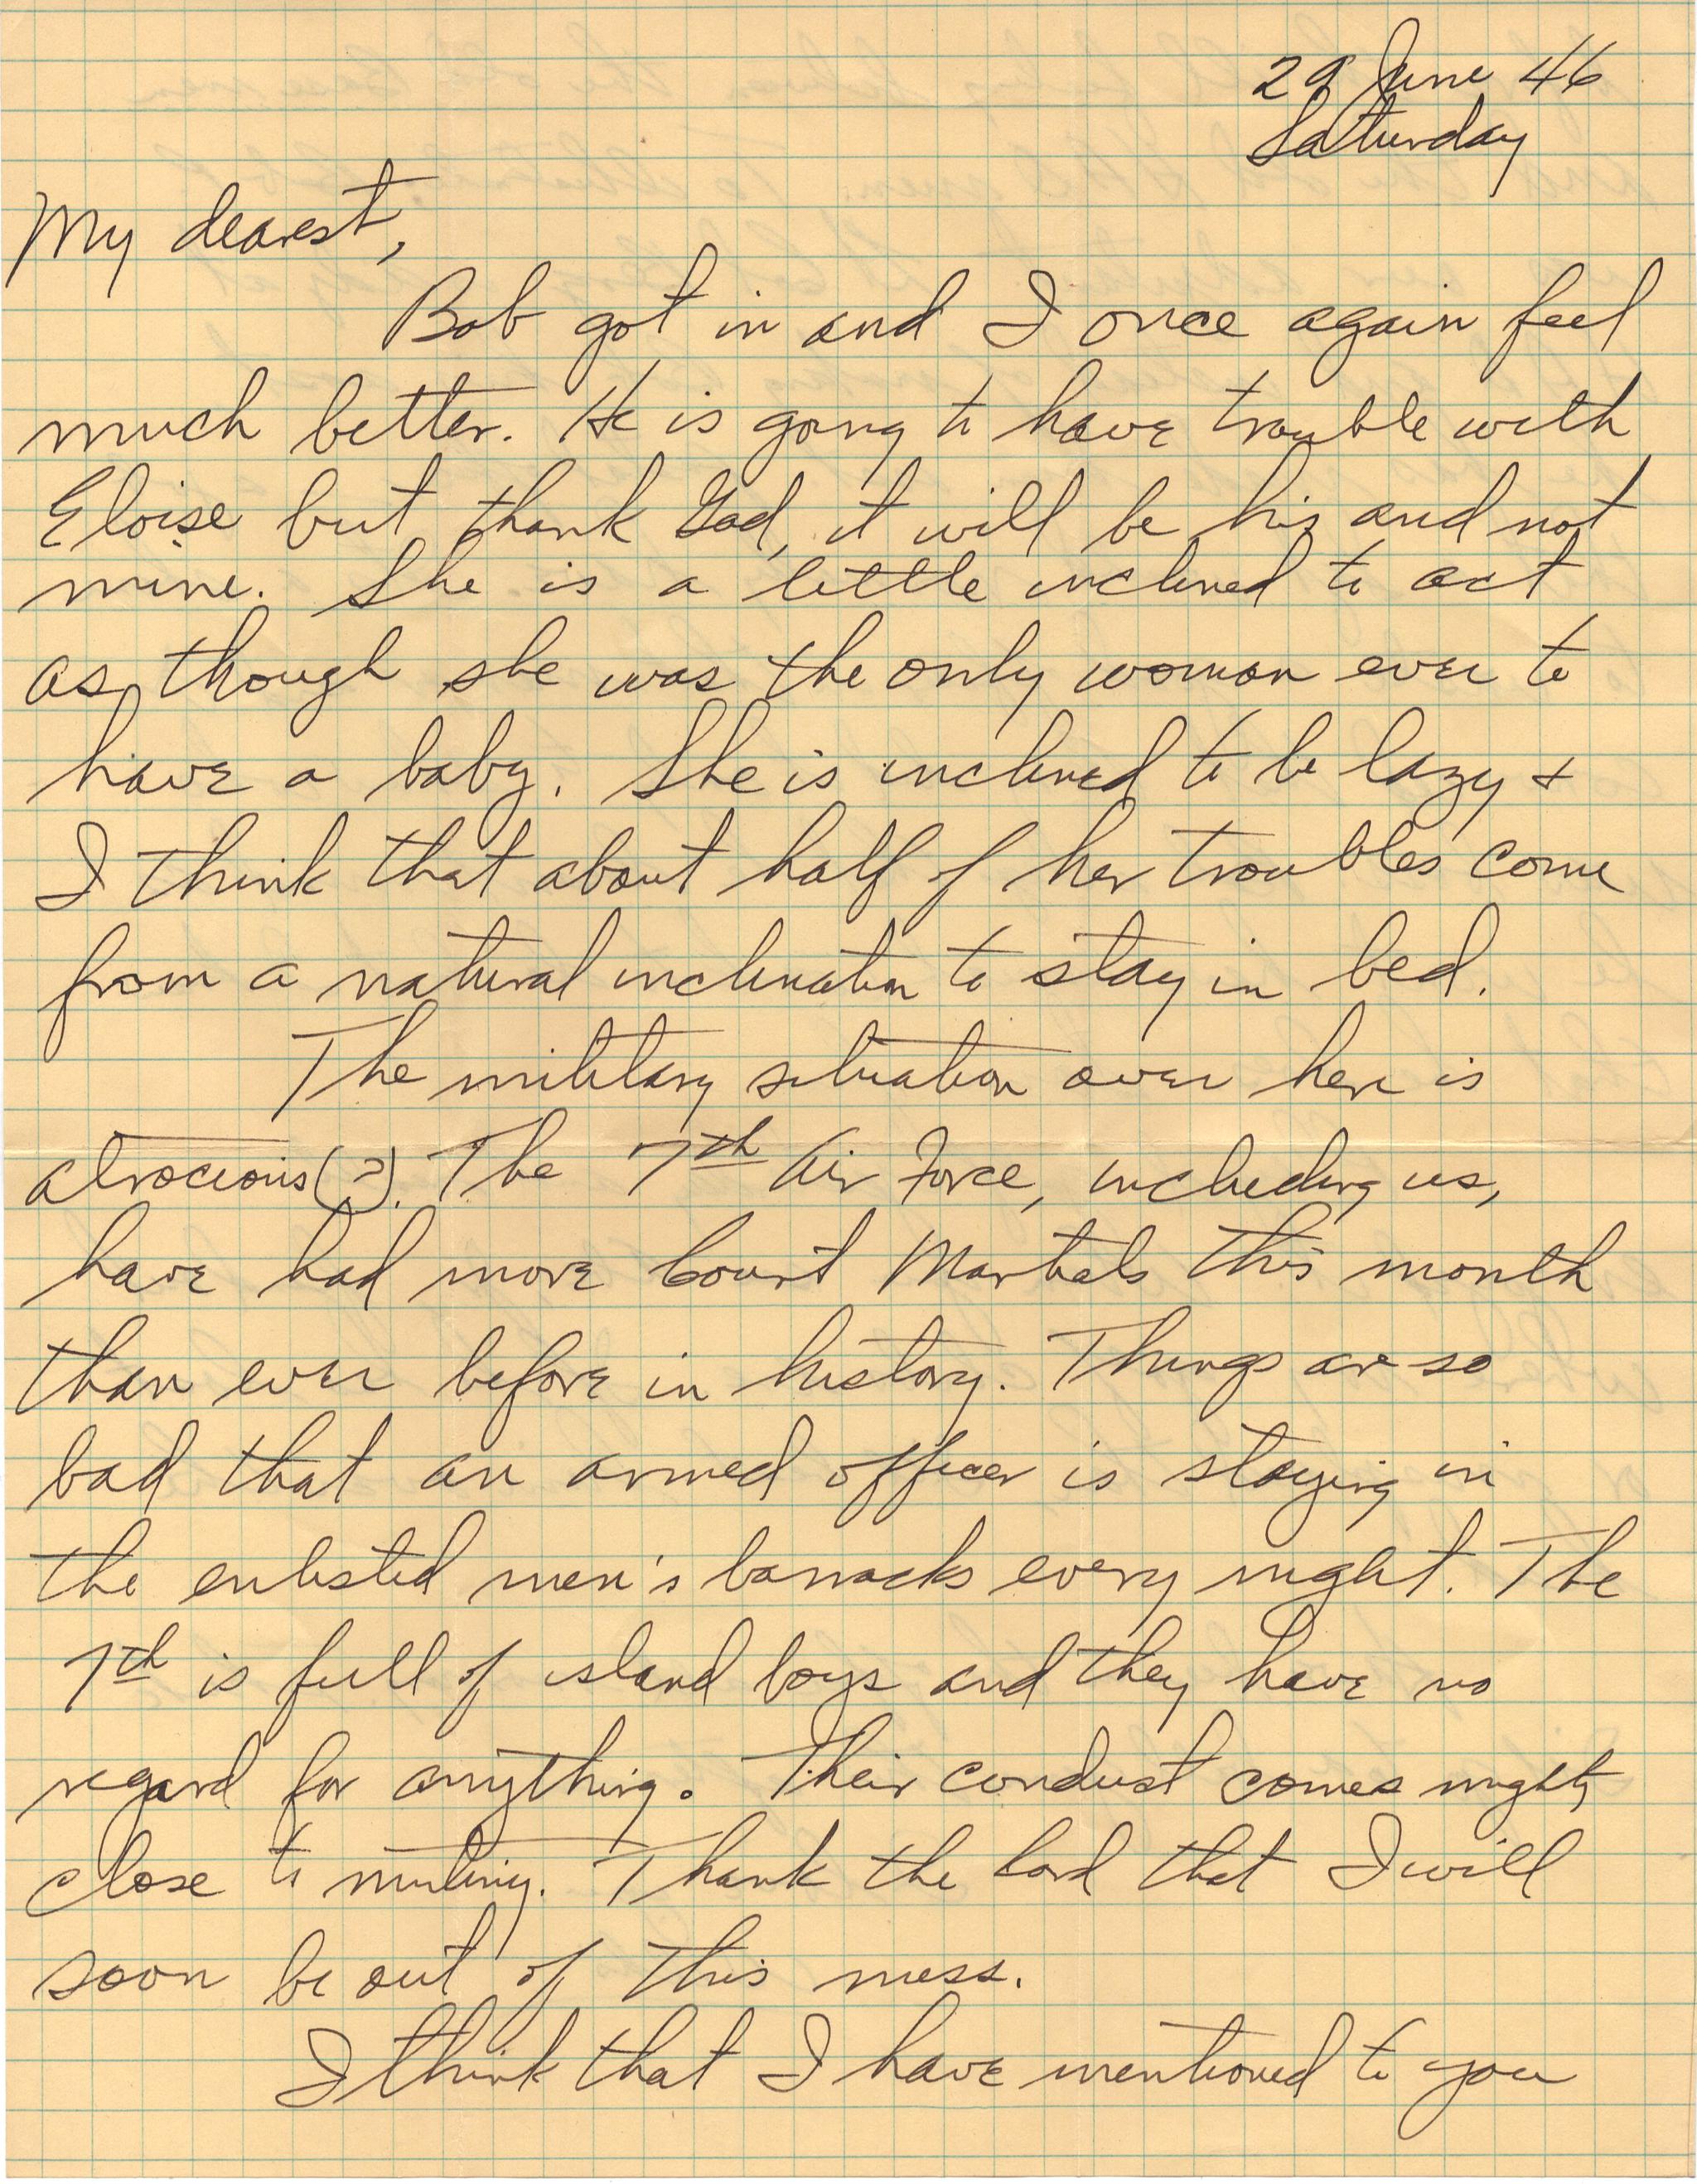 29 June 46
Saturday
My dearest,
Bob got in and I once again feel
much better. He is going to have trouble with
Eloise but, thank God, it will be his and not
mine. She is a little inclined to act
as though she was the only woman ever to
have a baby. She is inclined to be lazy +
I think that about half of her troubles come
from a natural inclination to stay in bed.
The military situation over here is
atrocious(?). The 7th Air Force, including us,
have had more Court Martials this month
than ever before in history. Things are so
bad that an armed officer is staying in
the enlisted men's barracks every night. The
7th is full of island boys and they have no
regard for anything. Their conduct comes mighty
close to mutiny. Thank the Lord that I will
soon be out of this mess.
I think that I have mentioned to you